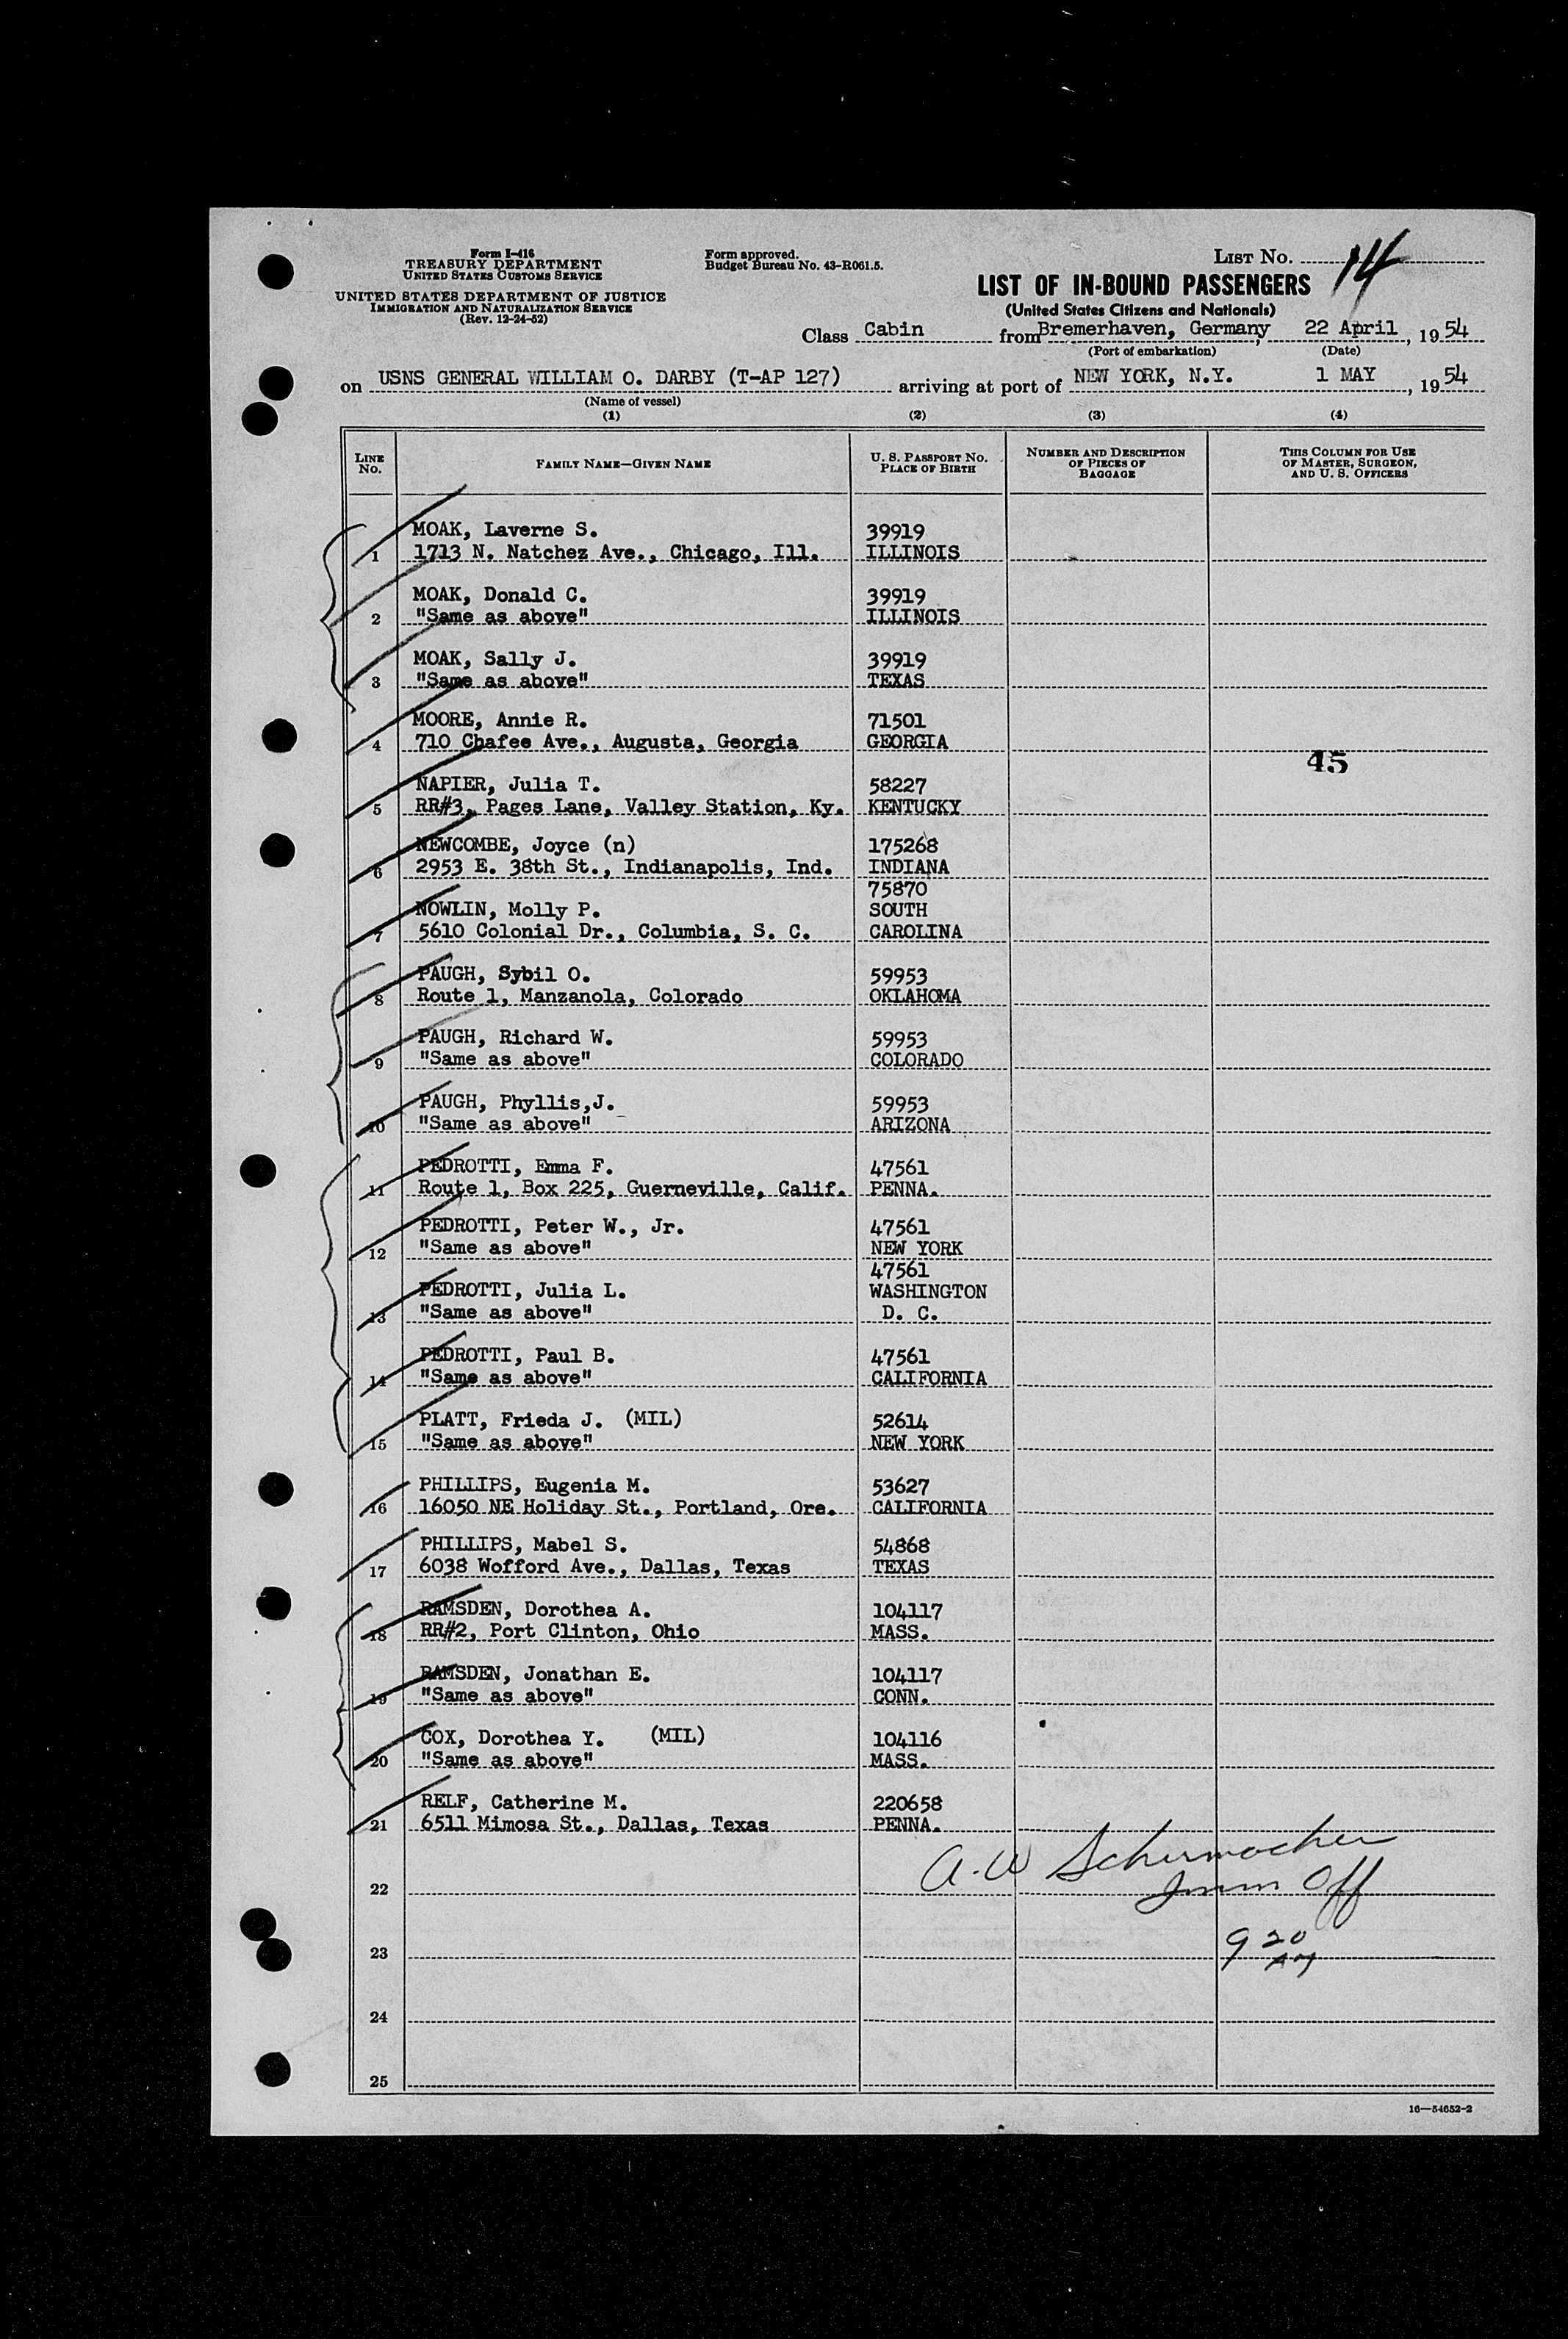 Form I-416
TREASURY DEPARTMENT
UNITED STATES CUSTOMS SERVICE
UNITED STATES DEPARTMENT OF JUSTICE
IMMIGRATION AND NATURALIZATION SERVICE
(Rev. 12-24-52)
Form approved.
Budget Bureau No. 43-R061.5.
LIST NO. 14
LIST OF IN-BOUND PASSENGERS
(United States Citizens and Nationals)
Class Cabin from Bremerhaven, Germany, 22 April, 1954
(Port of embarkation) (Date)
on USNS GENERAL WILLIAM O. DARBY (T-AP 127) arriving at port of NEW YORK, N.Y. 1 MAY, 1954
(Name of vessel)
(1) (2) (3) (4)
LINE NO. FAMILY NAME—GIVEN NAME U. S. PASSPORT NO. PLACE OF BIRTH NUMBER AND DESCRIPTION OF PIECES OF BAGGAGE THIS COLUMN FOR USE OF MASTER, SURGEON, AND U. S. OFFICERS
MOAK, Laverne S. 39919
1 1713 N. Natchez Ave., Chicago, Ill. ILLINOIS
MOAK, Donald C. 39919
2 "Same as above" ILLINOIS
MOAK, Sally J. 39919
3 "Same as above" TEXAS
MOORE, Annie R. 71501
4 710 Chafee Ave., Augusta, Georgia GEORGIA
45
NAPIER, Julia T. 58227
5 RR#3, Pages Lane, Valley Station, Ky. KENTUCKY
NEWCOMBE, Joyce (n) 175268
6 2953 E. 38th St., Indianapolis, Ind. INDIANA
75870
NOWLIN, Molly P. SOUTH
7 5610 Colonial Dr., Columbia, S. C. CAROLINA
PAUGH, Sybil O. 59953
8 Route 1, Manzanola, Colorado OKLAHOMA
PAUGH, Richard W. 59953
9 "Same as above" COLORADO
PAUGH, Phyllis,J. 59953
10 "Same as above" ARIZONA
PEDROTTI, Emma F. 47561
11 Route 1, Box 225, Guerneville, Calif. PENNA.
PEDROTTI, Peter W., Jr. 47561
12 "Same as above" NEW YORK
47561
PEDROTTI, Julia L. WASHINGTON
13 "Same as above" D. C.
PEDROTTI, Paul B. 47561
14 "Same as above" CALIFORNIA
PLATT, Frieda J. (MIL) 52614
15 "Same as above" NEW YORK
PHILLIPS, Eugenia M. 53627
16 16050 NE Holiday St., Portland, Ore. CALIFORNIA
PHILLIPS, Mabel S. 54868
17 6038 Wofford Ave., Dallas, Texas TEXAS
RAMSDEN, Dorothea A. 104117
18 RR#2, Port Clinton, Ohio MASS.
RAMSDEN, Jonathan E. 104117
19 "Same as above" CONN.
COX, Dorothea Y. (MIL) 104116
20 "Same as above" MASS.
RELF, Catherine M. 220658
21 6511 Mimosa St., Dallas, Texas PENNA.
A.W Schumacher
22 Imm Off
23 9 20 AM
24
25
16—54652-2